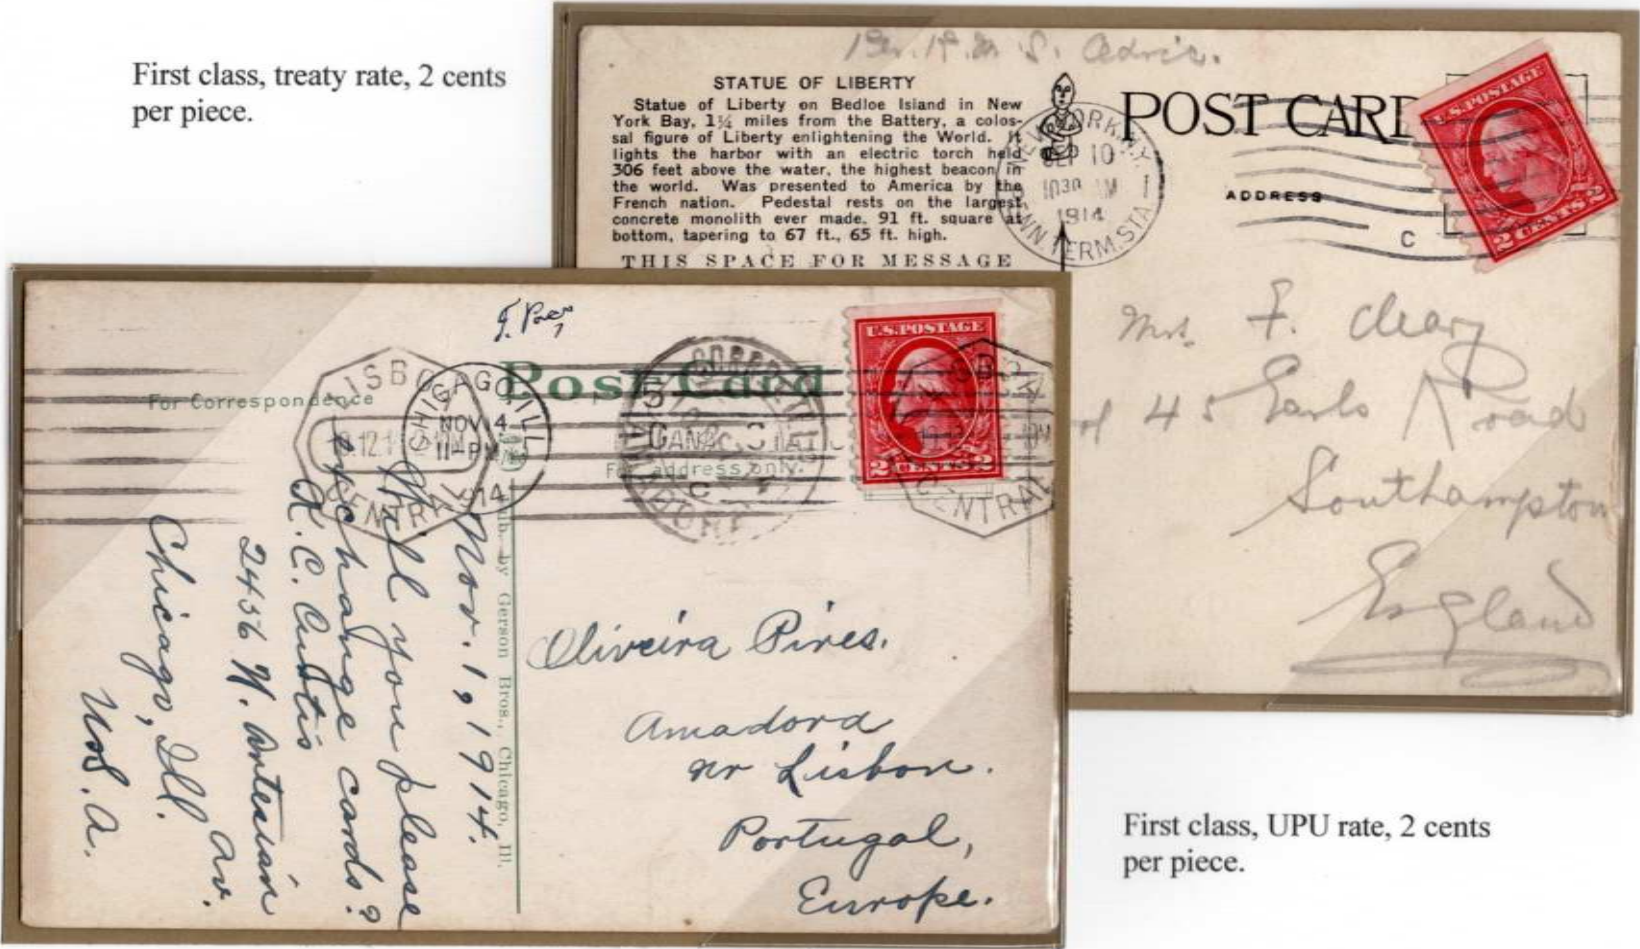 First class, treaty rate, 2 cents
per piece.
Per. R.M.S. Adric.
STATUE OF LIBERTY
Statue of Liberty on Bedloe Island in New
York Bay, 1¼ miles from the Battery, a colos-
sal figure of Liberty enlightening the World. It
lights the harbor with an electric torch held
306 feet above the water, the highest beacon in
the world. Was presented to America by the
French nation. Pedestal rests on the largest
concrete monolith ever made, 91 ft. square at
bottom, tapering to 67 ft., 65 ft. high.
THIS SPACE FOR MESSAGE
POST CARD
ADDRESS
NEW YORK, N.Y.
SEP 10
1030 AM
1914
PENN TERM. STA.
C
U.S. POSTAGE
2 CENTS 2
Mrs. F. Cleary
45 Earls Road
Southampton
England
Post Card
For Correspondence
For address only.
LISBOA
CENTRAL
CHICAGO, ILL.
NOV 4
11-PM
1914
CORREIO
CANADA
U.S. POSTAGE
2 CENTS 2
LISBOA
CENTRAL
Nov. 1, 1914.
Shall you please
exchange cards?
A. C. Curtis
2436 N. Artesian
Av.
Chicago, Ill.
U.S.A.
Pub. by Gerson Bros., Chicago, Ill.
Oliveira Pires.
Amadora
nr Lisbon.
Portugal,
Europe.
First class, UPU rate, 2 cents
per piece.